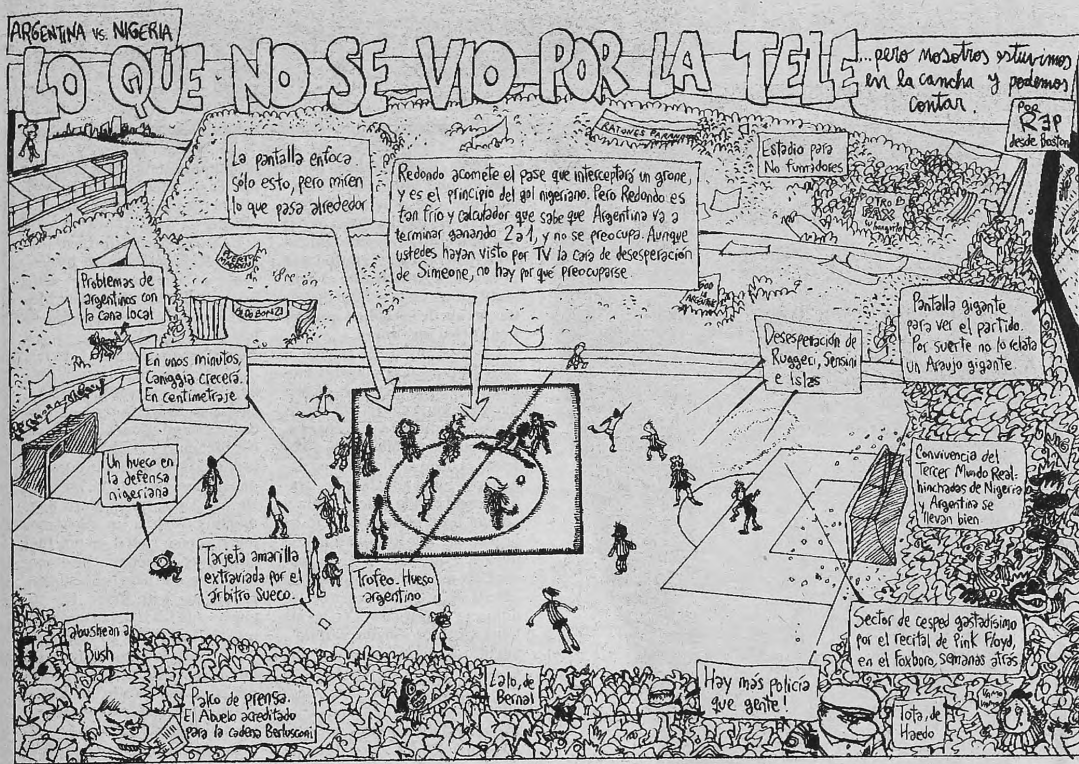 ARGENTINA VS. NIGERIA
LO QUE NO SE VIO POR LA TELE
...pero nosotros estuvimos
en la cancha y podemos
contar.
Por
REP
desde Boston
La pantalla enfoca
sólo esto, pero miren
lo que pasa alrededor
Redondo acomete el pase que interceptará un grone,
y es el principio del gol nigeriano. Pero Redondo es
tan frío y calculador que sabe que Argentina va a
terminar ganando 2 a 1, y no se preocupa. Aunque
ustedes hayan visto por TV la cara de desesperación
de Simeone, no hay por qué preocuparse.
RATONES PARANOI
Estadio para
No fumadores
OTRO
PUERTO
MADRYN
ALDO BONZI
Problemas de
argentinos con
la cana local
En unos minutos,
Caniggia crecerá.
En centimetraje
Desesperación de
Ruggeri, Sensini
e Islas
Pantalla gigante
para ver el partido.
Por suerte no lo relata
un Araujo gigante.
Un hueco en
la defensa
nigeriana
Convivencia del
Tercer Mundo Real:
hinchadas de Nigeria
y Argentina se
llevan bien
Tarjeta amarilla
extraviada por el
árbitro sueco.
Trofeo. Hueso
argentino
Sector de cesped gastadísimo
por el recital de Pink Floyd,
en el Foxboro, semanas atrás
abushean a
Bush
Palco de prensa.
El Abuelo acreditado
para la cadena Berlusconi
Lalo, de
Bernal
Hay más policía
que gente!
Tota, de
Haedo